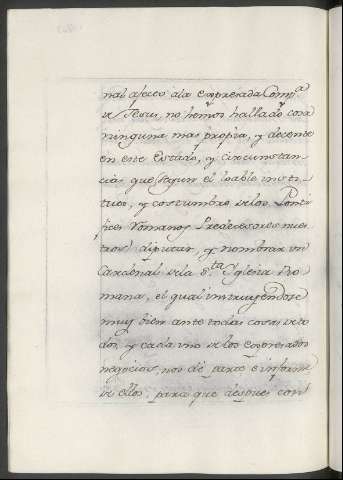 nal afecto ala expresada Comp.a
de Jesus, no hemos hallado cosa
ninguna mas propia, y decente
en este Estado, y circunstan
cias que segun el loable insti
tuto, y costumbre de los Ponti
fices Romanos Predecesores nues
tros diputar, y nombrar un
Cardenal de la S.ta Yglesia Ro
mana, el qual instruyendose
muy bien ante todas cosas de to
dos, y cada uno de los expresados
negocios, nos dé parte e informe
de ellos, para que despues con